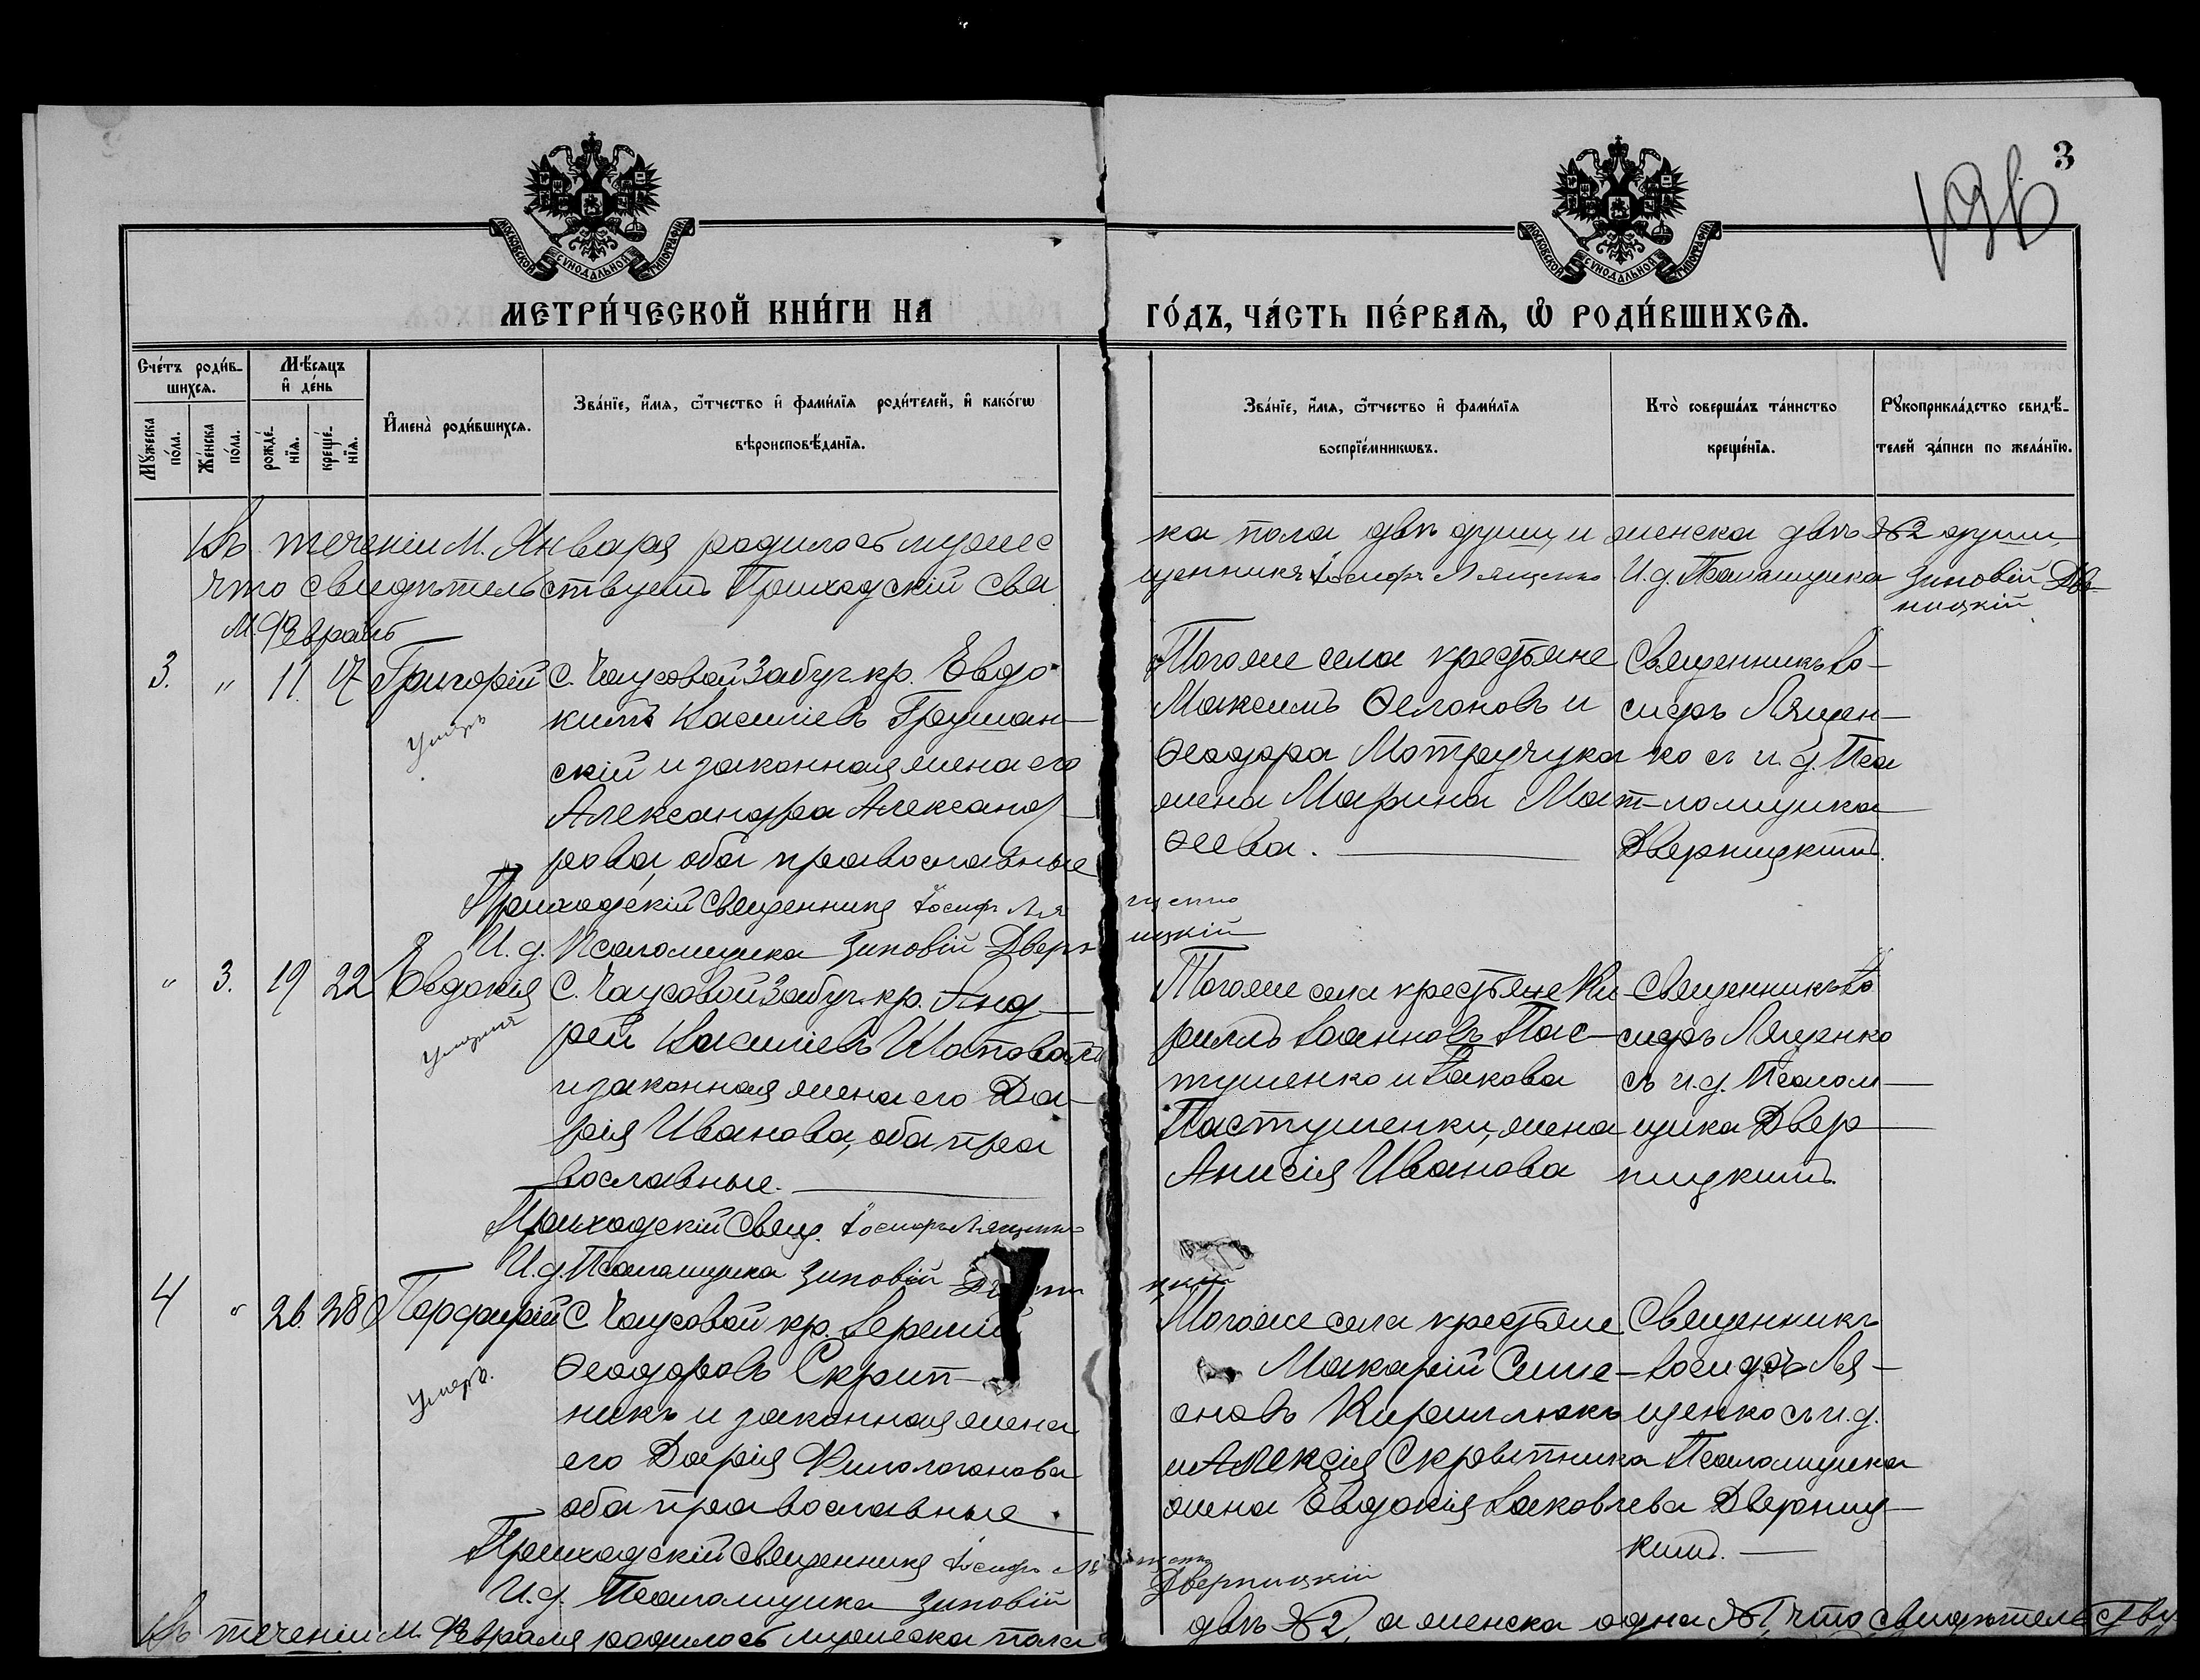 3
МОСКОВСКОЙ СѴНОДАЛЬНОЙ ТИПОГРАФІИ
МОСКОВСКОЙ СѴНОДАЛЬНОЙ ТИПОГРАФІИ
МЕТРИ́ЧЕСКОЙ КНИ́ГИ НА
ГО́ДЪ, ЧА́СТЬ ПЕ́РВАѦ, Ѽ РОДИ́ВШИХСѦ.
Сче́тъ роди́в-
шихсѧ.
Мꙋ́жеска по́ла.
Же́нска по́ла.
Мѣ́сѧцъ
и҆ де́нь
рожде́-
нїѧ.
креще́-
нїѧ.
И҆мена̀ роди́вшихсѧ.
Зва́нїе, и҆́мѧ, ѻ҆́тчество и҆ фами́лїѧ роди́телей, и҆ како́гѡ
вѣроисповѣ́данїѧ.
Зва́нїе, и҆́мѧ, ѻ҆́тчество и҆ фами́лїѧ
воспрїе́мникѡвъ.
Кто̀ соверша́лъ та́инство
креще́нїѧ.
Рꙋкоприкла́дство свидѣ́-
телей за́писи по жела́нїю.
Въ теченіи М. Января родилось мужес
ка пола двѣ души, и женска двѣ №2 души,
что свидѣтельствуетъ Приходскій Свя
щенникъ Іосифъ Лященко И. д. Псаломщика Зиновій Две-
ницкій
М. Февраль
3. " 11. 17 Григорій
умеръ
С. Чаусовой Забуж. кр. Евдо
кимъ Василіевъ Грушан-
скій и законная жена его
Александра Александ-
рова, оба православные
Тогоже села крестьяне
Максимъ Ѳеломовъ и
Ѳеодора Мотручука
жена Марина Мат-
ѳеева.
Священникъ Іо-
сифъ Лящен-
ко съ и. д. Пса
ломщика
Дверницкимъ.
Приходскій Священникъ Іосифъ Лященко
И. д. Псаломщика Зиновій Дверницкій
" 3. 19 22 Евдокія
умерла
С. Чаусовой Забуж. кр. Анд-
рей Василіевъ Шаповалъ
и законная жена его Да-
рія Иванова, оба пра
вославные.
Тогоже села крестьяне Ки-
риллъ Іоанновъ Пас-
тушенко и Іакова
Пастушенки, жена
Анисія Иванова
Священникъ Іо
сифъ Лященко
съ и. д. Псалом-
щика Двер-
ницкимъ.
Приходскій Свящ. Іосифъ Лященко
И. д. Псаломщика Зиновій
цкій
4 " 26. 28 Порфирій
Умеръ.
С. Чаусовой кр. Іеремій
Ѳеодоровъ Скрип-
никъ и законная жена
его Дарія
оба православные
Тогоже села крестьяне
Макарій Симе-
оновъ Кириллюкъ
и Алексія Скрыпника
жена Евдокія Іаковлева
Священникъ
Іосифъ Ля-
щенко съ и. д.
Псаломщика
Дверниц-
кимъ.
Приходскій Священникъ Іосифъ Лященко
И. д. Псаломщика Зиновій Дверницкій
Въ теченіи М. Февраля родилось мужеска пола
двѣ №2, а женска одна №1, что свидѣтельству